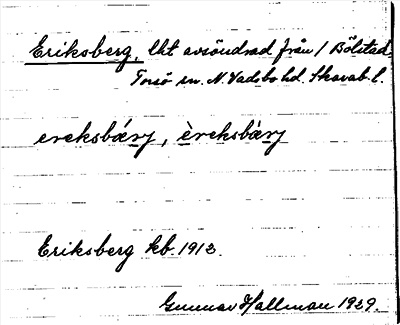 Eriksberg, lht avsöndrad från 1 Bölstad,
Torsö sn. N. Vadsbo hd. Skarab. l.
ereksbærj, èreksbàrj
Eriksberg kb. 1913.
Gunnar Hallman 1929.